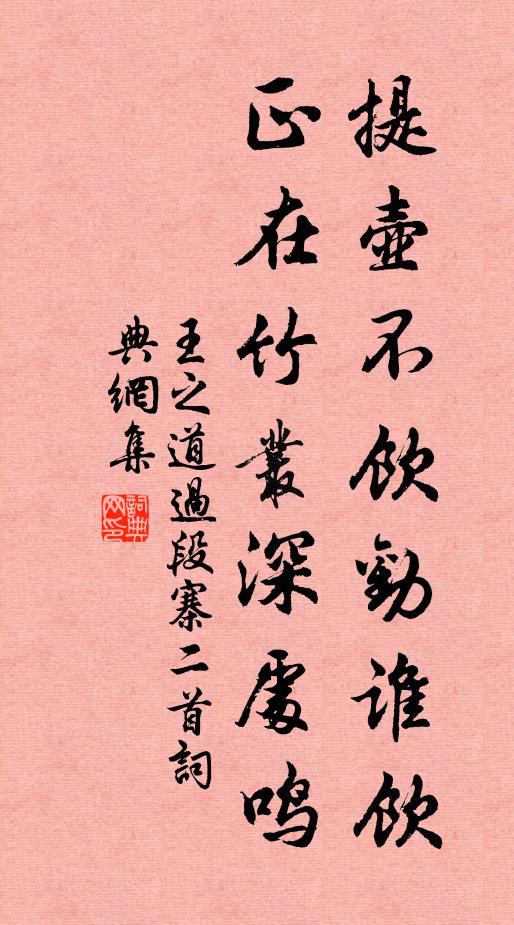 提壺不飲勸誰飲
正在竹叢深處鳴
王之道過段寨二首詞
典網集
詞典网印